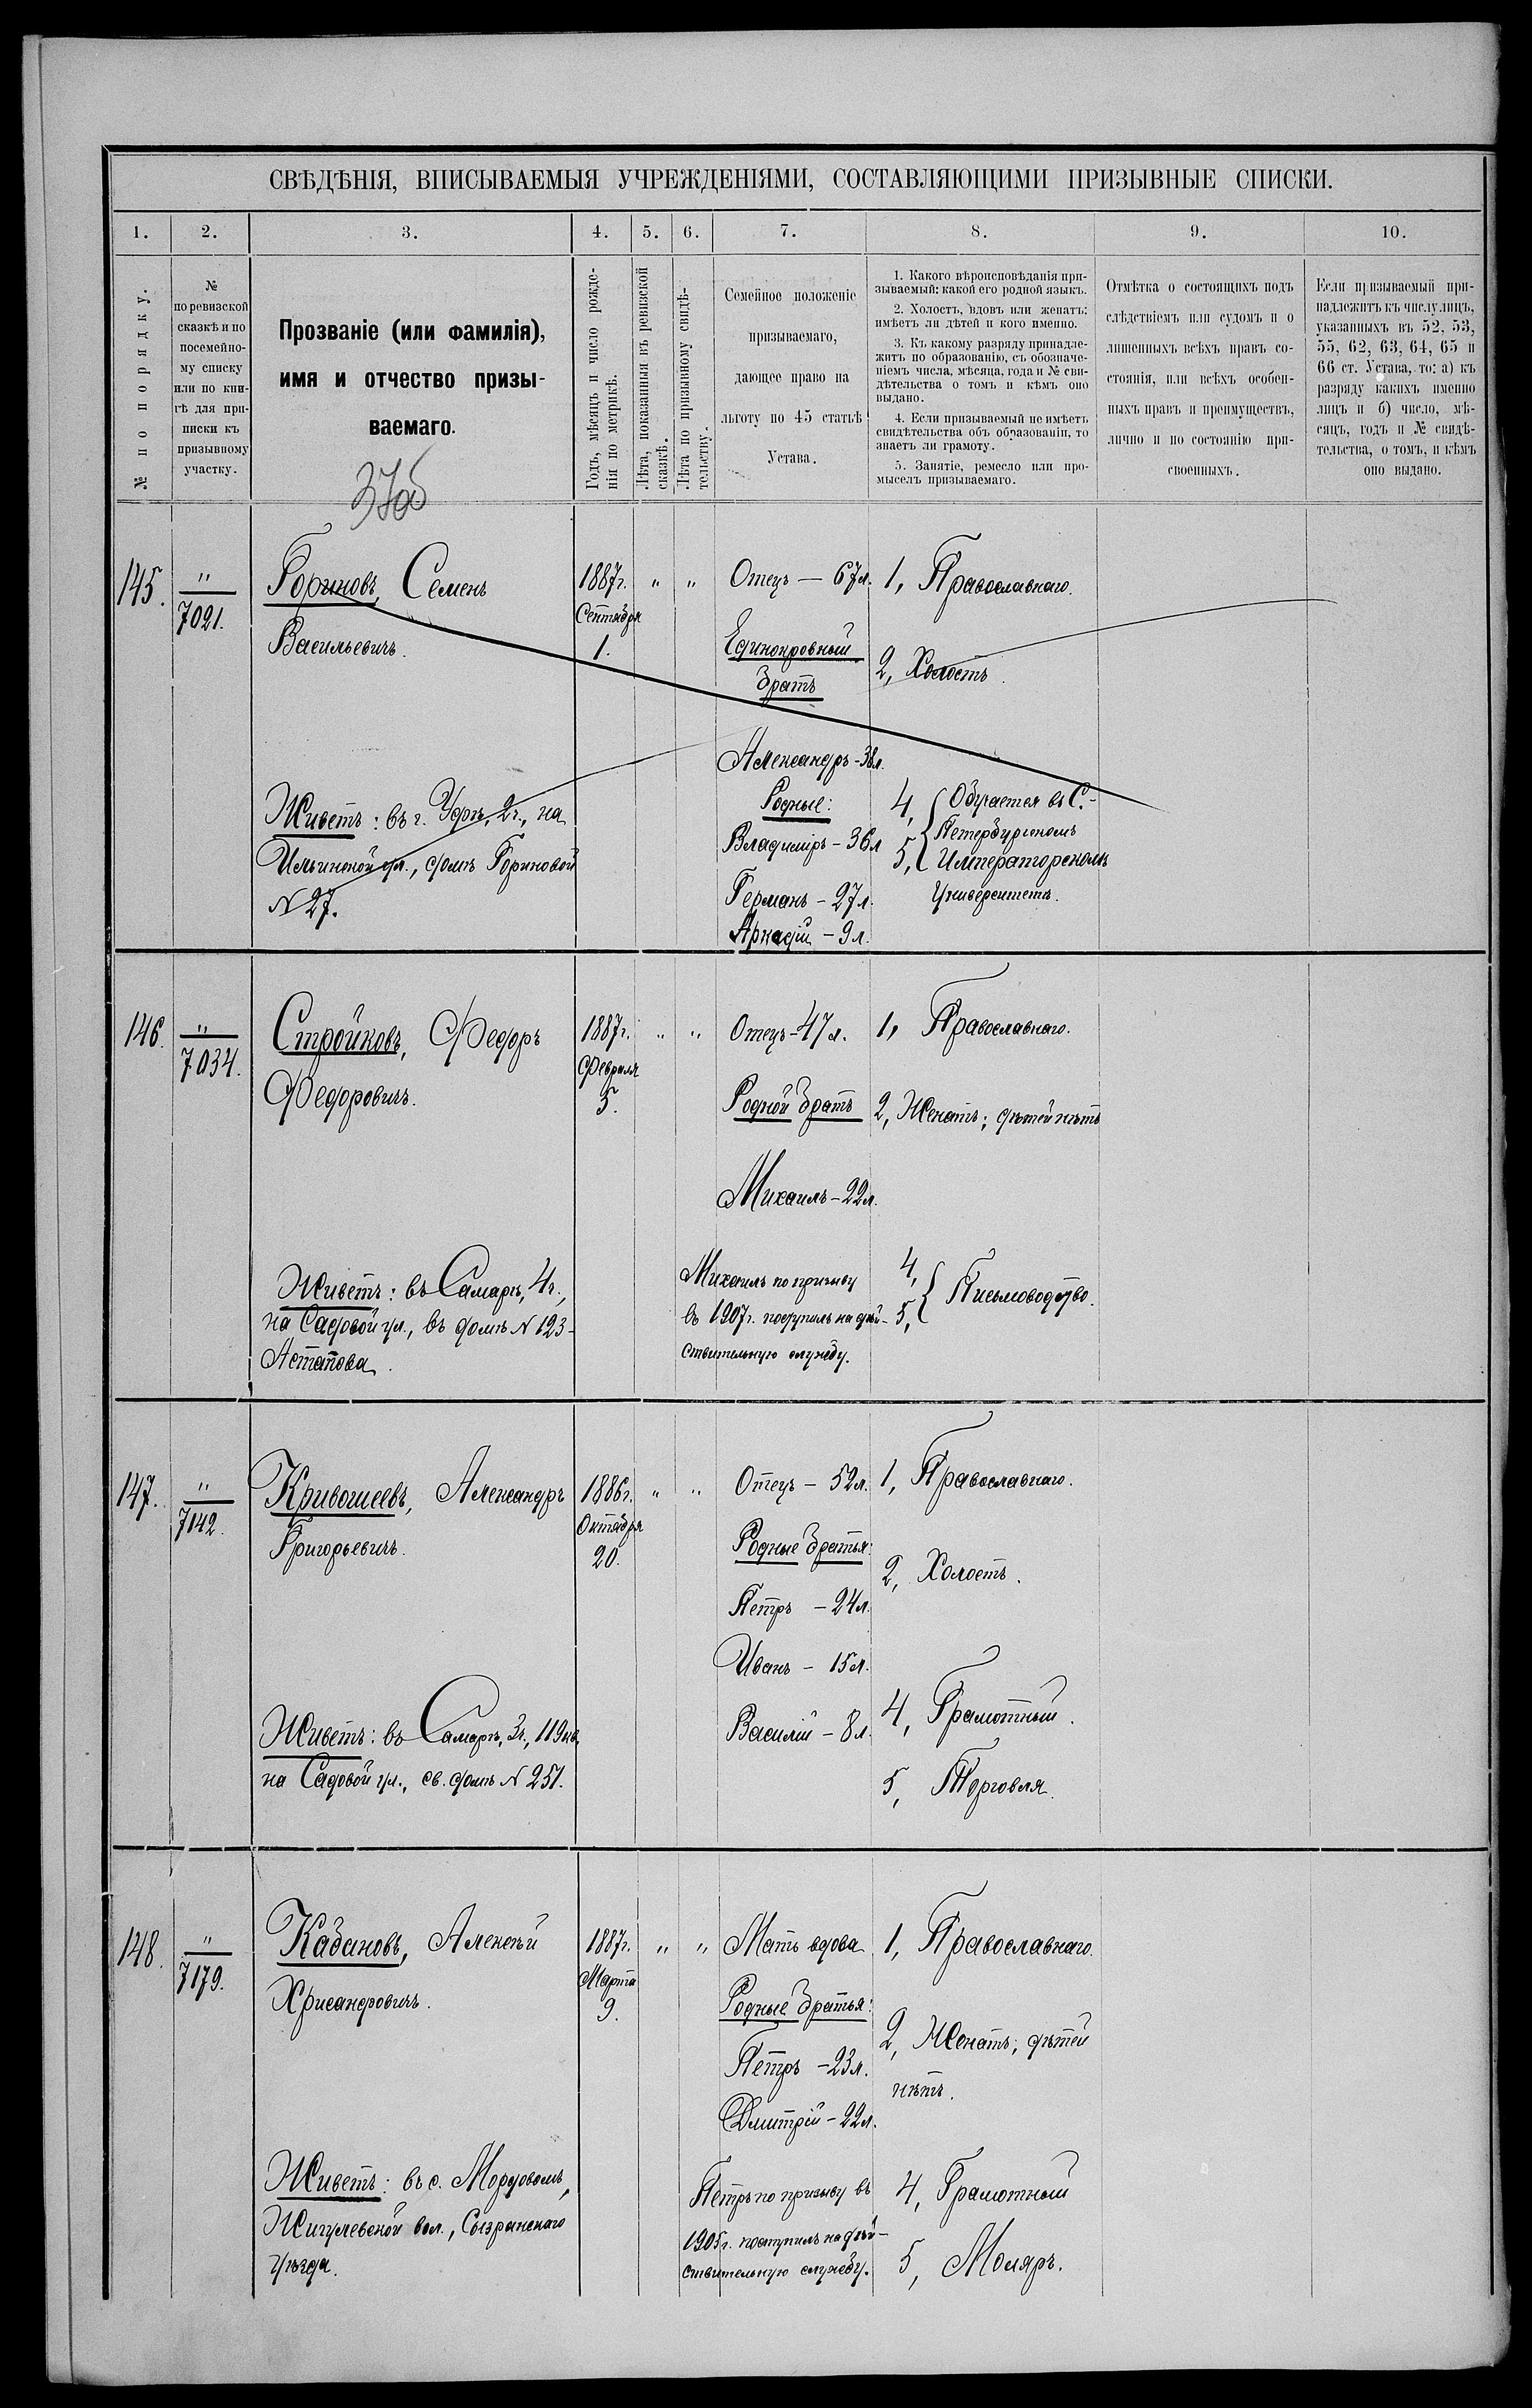 СВѢДѢНІЯ, ВПИСЫВАЕМЫЯ УЧРЕЖДЕНІЯМИ, СОСТАВЛЯЮЩИМИ ПРИЗЫВНЫЕ СПИСКИ.
1. 2. 3. 4. 5. 6. 7. 8. 9. 10.
№ по порядку.
№
по ревизской
сказкѣ и по
посемейно-
му списку
или по кни-
гѣ для при-
писки къ
призывному
участку.
Прозваніе (или фамилія),
имя и отчество призы-
ваемаго.
Годъ, мѣсяцъ и число рожде-
нія по метрикѣ.
Лѣта, показанныя въ ревизской
сказкѣ.
Лѣта по призывному свидѣ-
тельству.
Семейное положеніе
призываемаго,
дающее право на
льготу по 45 статьѣ
Устава.
1. Какого вѣроисповѣданія при-
зываемый: какой его родной языкъ.
2. Холостъ, вдовъ или женатъ:
имѣетъ ли дѣтей и кого именно.
3. Къ какому разряду принадле-
житъ по образованію, съ обозначе-
ніемъ числа, мѣсяца, года и № сви-
дѣтельства о томъ и кѣмъ оно
выдано.
4. Если призываемый не имѣетъ
свидѣтельства объ образованіи, то
знаетъ ли грамоту.
5. Занятіе, ремесло или про-
мыселъ призываемаго.
Отмѣтка о состоящихъ подъ
слѣдствіемъ или судомъ и о
лишенныхъ всѣхъ правъ со-
стоянія, или всѣхъ особен-
ныхъ правъ и преимуществъ,
лично и по состоянію при-
своенныхъ.
Если призываемый при-
надлежитъ къ числу лицъ,
указанныхъ въ 52, 53,
55, 62, 63, 64, 65 и
66 ст. Устава, то: а) къ
разряду какихъ именно
лицъ и б) число, мѣ-
сяцъ, годъ и № свидѣ-
тельства, о томъ, и кѣмъ
оно выдано.
145.
"
7021.
Гориновъ, Семенъ
Васильевичъ.
Живетъ: въ г. Уфѣ, 2ч., на
Ильинской ул., домъ Гориновой
N 27.
1887г.
Сентября
1.
" "
Отецъ — 67л.
Единокровный
братъ
Александръ - 38л.
Родные:
Владиміръ - 36л
Германъ - 27л.
Аркадій - 9л.
1, Православнаго.
2, Холостъ.
4, Обучается въ С.-
Петербургскомъ
5, Императорскомъ
Университетѣ.
146.
"
7034.
Стройковъ, Федоръ
Федоровичъ.
Живетъ: въ Самарѣ, 4ч.,
на Садовой ул., въ домѣ N 123-
Астапова.
1887г.
Февраля
5.
" "
Отецъ - 47л.
Родной братъ
Михаилъ - 22л.
Михаилъ по призыву
въ 1907г. поступилъ на дѣй-
ствительную службу.
1, Православнаго.
2, Женатъ; дѣтей нѣтъ
4,
5, Письмоводство.
147.
"
7142.
Кривошеевъ, Александръ
Григорьевичъ.
Живетъ: въ Самарѣ, 3ч., 119кв.
на Садовой ул., св. домъ N 251.
1886г.
Октября
20.
" "
Отецъ - 52л.
Родные братья:
Петръ - 24л.
Иванъ - 15л.
Василій - 8л.
1, Православнаго.
2, Холостъ.
4, Грамотный.
5, Торговля.
148.
"
7179.
Кабановъ, Алексѣй
Хрисанфовичъ.
Живетъ: въ с. Мордовомъ,
Жигулевской вол., Сызранскаго
уѣзда.
1887г.
Марта
9.
" "
Мать вдова
Родные братья:
Петръ - 23л.
Дмитрій - 22л.
Петръ по призыву въ
1905г. поступилъ на дѣй-
ствительную службу.
1, Православнаго.
2, Женатъ; дѣтей
нѣтъ.
4, Грамотный
5, Моляръ.